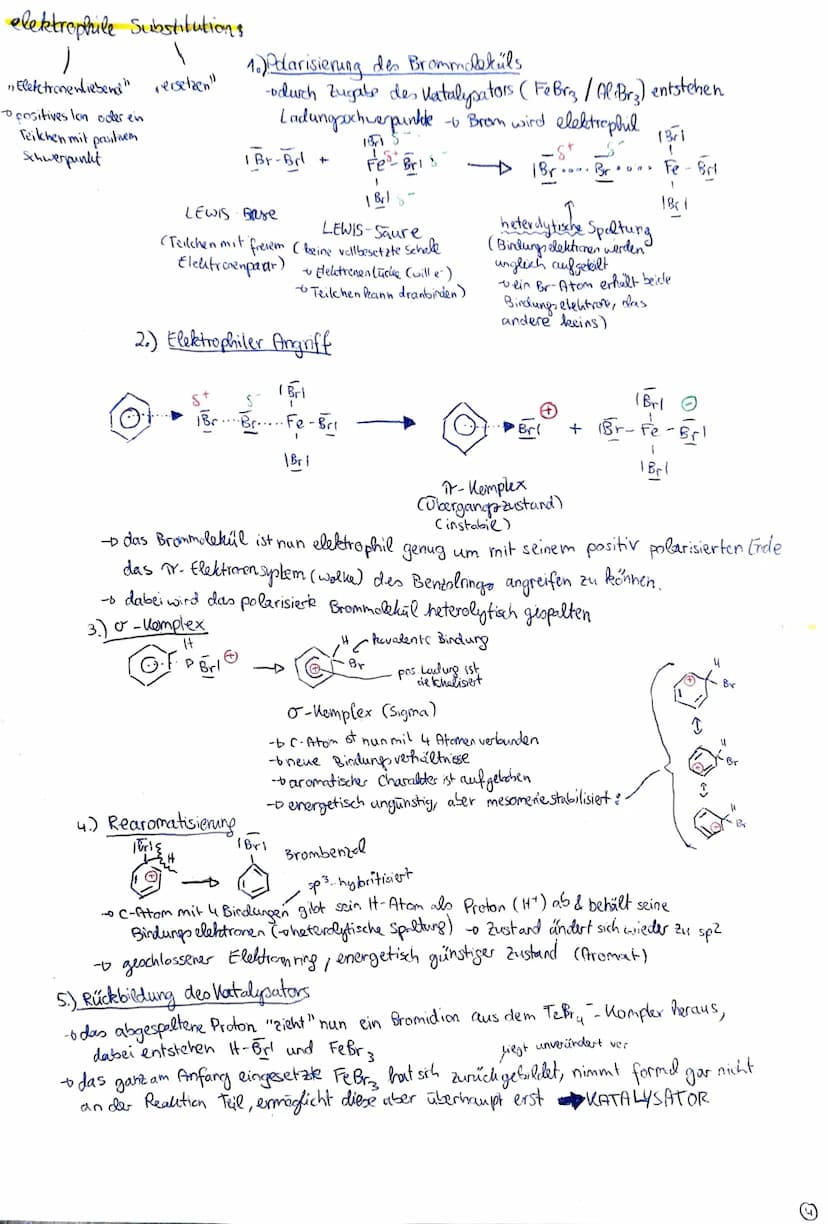 elektrophile Substitutions
„Elektronenliebend"
„ersetzen"
→ positives Ion oder ein
Teilchen mit positivem
Schwerpunkt
1.) Polarisierung des Brommoleküls
→ durch Zugabe des Katalysators (FeBr3 / AlBr3) entstehen
Ladungsschwerpunkte → Brom wird elektrophil
|Br-Br| + Fe-Br| → |Br....Br....Fe-Br|
|Br| δ-
δ+ δ-
|Br| δ-
δ+ δ-
|Br|
|Br|
LEWIS-Base
(Teilchen mit freiem
Elektronenpaar)
LEWIS-Säure
(keine vollbesetzte Schale
→ Elektronenlücke (will e-)
→ Teilchen kann dranbinden)
heterolytische Spaltung
(Bindungselektronen werden
ungleich aufgeteilt
→ ein Br-Atom erhält beide
Bindungselektrone, das
andere keins)
2.) Elektrophiler Angriff
|Br|
δ+ δ-
|Br....Br.....Fe-Br| → Br| ⊕ + |Br-Fe-Br| ⊖
|Br|
|Br|
|Br|
π-Komplex
(Übergangszustand)
(instabil)
→ das Brommolekül ist nun elektrophil genug um mit seinem positiv polarisierten Ende
das π-Elektronensystem (Wolke) des Benzolrings angreifen zu können.
→ dabei wird das polarisierte Brommolekül heterolytisch gespalten
3.) σ-Komplex
H
Br| ⊕ → ⊕ H Br
kovalente Bindung
pos. Ladung ist
delokalisiert
σ-Komplex (Sigma)
→ C-Atom ist nun mit 4 Atomen verbunden
→ neue Bindungsverhältnisse
→ aromatischer Charakter ist aufgehoben
→ energetisch ungünstig, aber mesomeriestabilisiert:
⊕ H Br
⊕ H Br
⊕ H Br
4.) Rearomatisierung
|Br| H
⊕ →
|Br|
Brombenzol
sp3-hybritisiert
→ C-Atom mit 4 Bindungen gibt sein H-Atom als Proton (H+) ab & behält seine
Bindungselektronen (→ heterolytische Spaltung) → Zustand ändert sich wieder zu sp2
→ geschlossener Elektronring, energetisch günstiger Zustand (Aromat)
5.) Rückbildung des Katalysators
→ das abgespaltene Proton "zieht" nun ein Bromidion aus dem FeBr4- -Komplex heraus,
dabei entstehen H-Br| und FeBr3
liegt unverändert vor
→ das ganz am Anfang eingesetzte FeBr3 hat sich zurückgebildet, nimmt formal gar nicht
an der Reaktion Teil, ermöglicht diese aber überhaupt erst → KATALYSATOR
4